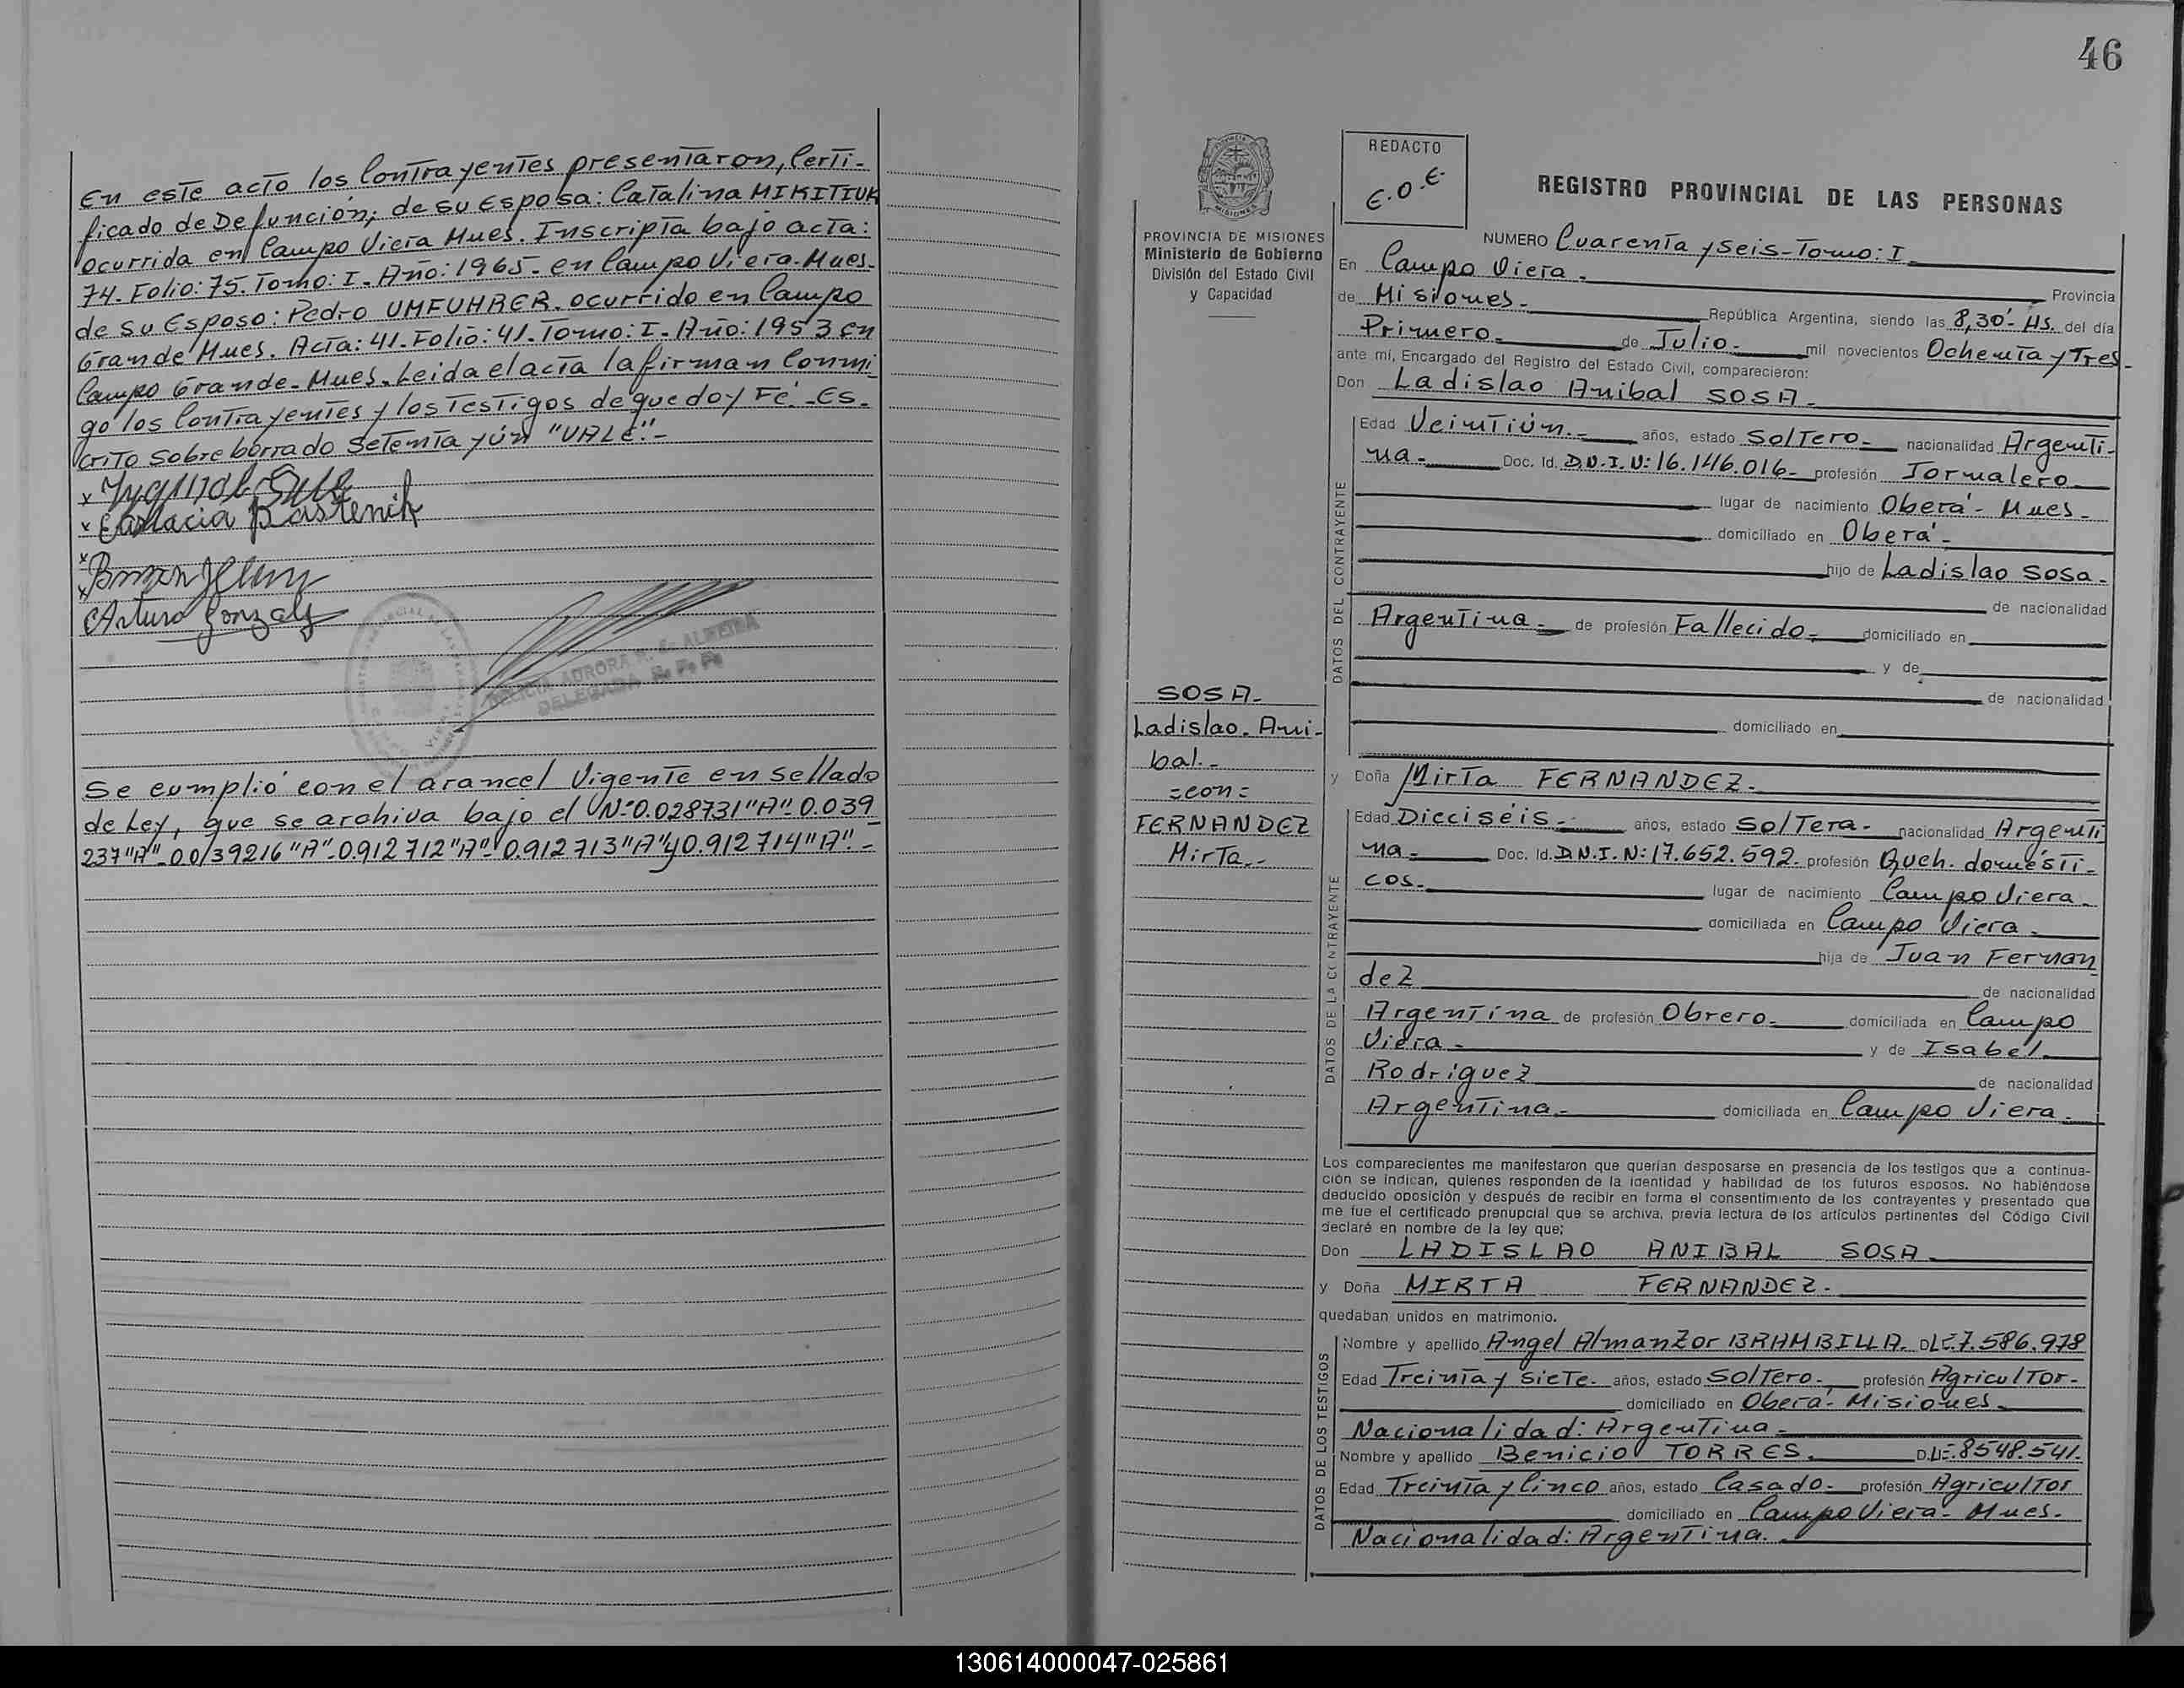 En este acto los Contrayentes presentaron, Certi-
ficado de Defunción; de su Esposa: Catalina MIKITIUK
ocurrida en Campo Viera Mnes. Inscripta bajo acta:
74. Folio: 75. Tomo: I. Año: 1965. en Campo Viera. Mnes.
de su Esposo: Pedro UMFUHRER. ocurrido en Campo
Grande Mnes. Acta: 41. Folio: 41. Tomo: I. Año: 1953 en
Campo Grande. Mnes. Leida el acta la firman Conmi
go los Contrayentes y los Testigos de que doy Fé. Es-
crito sobre borrado setenta y ún "VALE".-
x
x
x
x Arturo Gonzalez
DELEGADA R. P. P.
Se cumplió con el arancel Vigente en sellado
de Ley, que se archiva bajo el Nº 0.028731"A"-0.039
237"A"-00/39216"A"-0.912712"A"-0.912713"A"y0.912714"A".-
46
REDACTO
E.O.E.
REGISTRO PROVINCIAL DE LAS PERSONAS
PROVINCIA DE MISIONES
Ministerio de Gobierno
División del Estado Civil
y Capacidad
SOSA-
Ladislao. Ani-
bal.-
=con=
FERNANDEZ
Mirta.-
NUMERO Cuarenta y seis-Tomo: I.
En Campo Viera. Provincia
de Misiones. República Argentina, siendo las 8,30'- Hs. del día
Primero. de Julio. mil novecientos Ochenta y Tres-
ante mí, Encargado del Registro del Estado Civil, comparecieron:
Don Ladislao Anibal SOSA.
DATOS DEL CONTRAYENTE
Edad Veintiún. años, estado Soltero. nacionalidad Argenti-
na. Doc. Id. D.N.I.N: 16.146.016- profesión Jornalero
lugar de nacimiento Oberá- Mnes-
domiciliado en Oberá-
hijo de Ladislao Sosa.
de nacionalidad
Argentina. de profesión Fallecido. domiciliado en
y de
de nacionalidad
domiciliado en
y Doña Mirta FERNANDEZ.
DATOS DE LA CONTRAYENTE
Edad Dieciséis. años, estado Soltera- nacionalidad Argenti
na. Doc. Id. D.N.I.N: 17.652.592. profesión Queh. domésti-
cos. lugar de nacimiento Campo Viera.
domiciliada en Campo Viera.
hija de Juan Fernan
dez de nacionalidad
Argentina de profesión Obrero. domiciliada en Campo
Viera. y de Isabel
Rodriguez de nacionalidad
Argentina. domiciliada en Campo Viera.
Los comparecientes me manifestaron que querían desposarse en presencia de los testigos que a continua-
ción se indican, quienes responden de la identidad y habilidad de los futuros esposos. No habiéndose
deducido oposición y después de recibir en forma el consentimiento de los contrayentes y presentado que
me fue el certificado prenupcial que se archiva, previa lectura de los artículos pertinentes del Código Civil
declaré en nombre de la ley que;
Don LADISLAO ANIBAL SOSA
y Doña MIRTA FERNANDEZ.
quedaban unidos en matrimonio.
DATOS DE LOS TESTIGOS
Nombre y apellido Angel Almanzor BRAMBILLA. D.L.E. 7.586.978
Edad Treinta y siete. años, estado Soltero. profesión Agricultor-
domiciliado en Oberá- Misiones
Nacionalidad: Argentina.
Nombre y apellido Benicio TORRES. D.L.E. 8548.541.
Edad Treinta y Cinco años, estado Casado. profesión Agricultor
domiciliado en Campo Viera- Mnes.
Nacionalidad: Argentina.
130614000047-025861